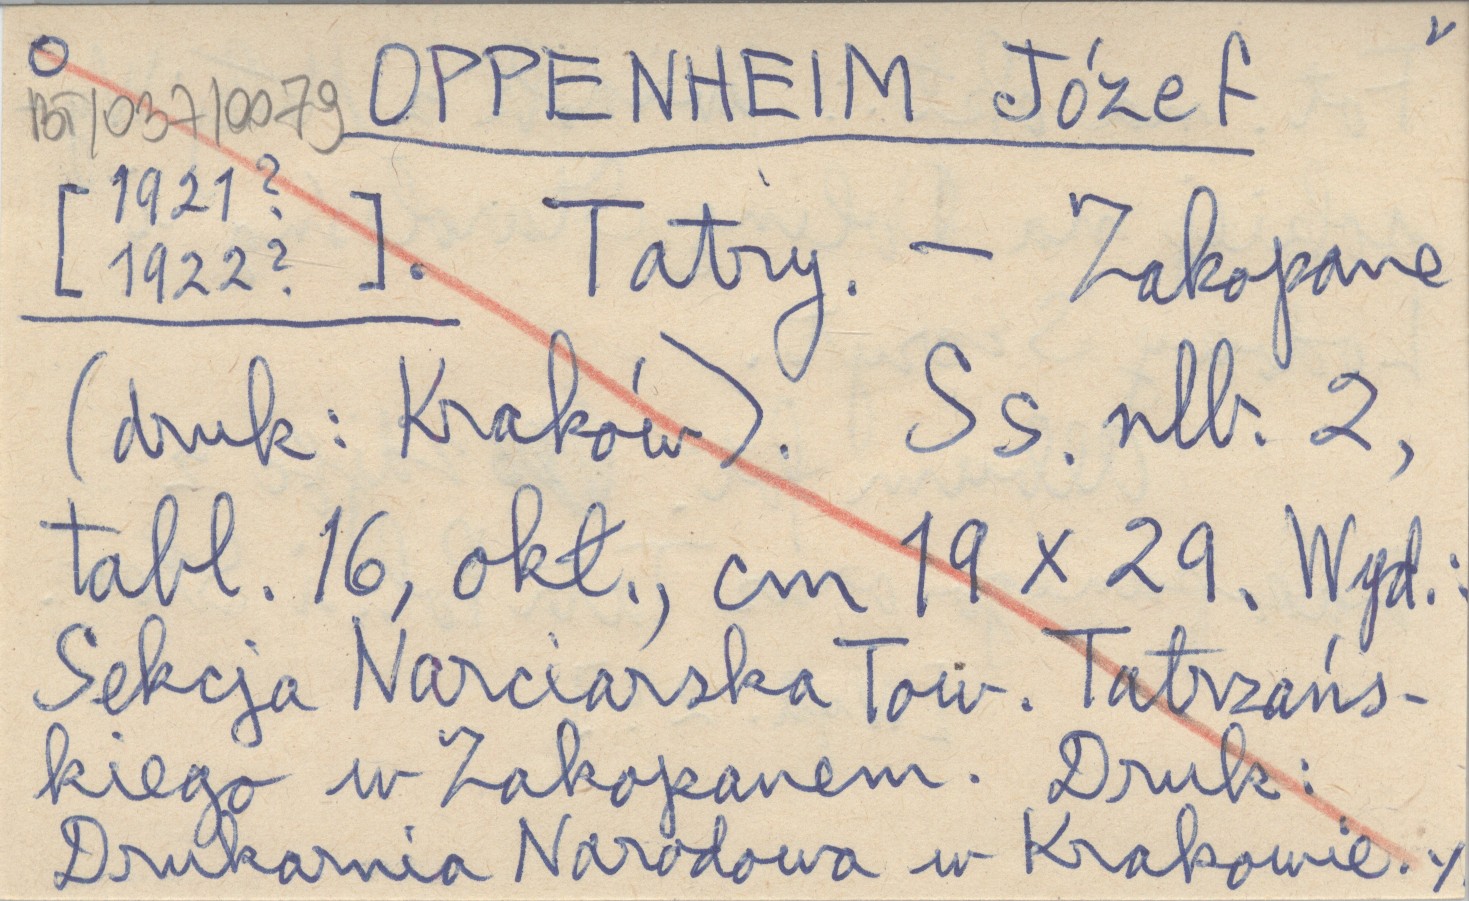 O OPPENHEIM Józef v
BT/037/0079
[1921?
1922?]. Tatry. – Zakopane
(druk: Kraków). Ss. nlb. 2,
tabl. 16, okł., cm 19 x 29. Wyd.:
Sekcja Narciarska Tow. Tatrzańs-
kiego w Zakopanem. Druk:
Drukarnia Narodowa w Krakowie.